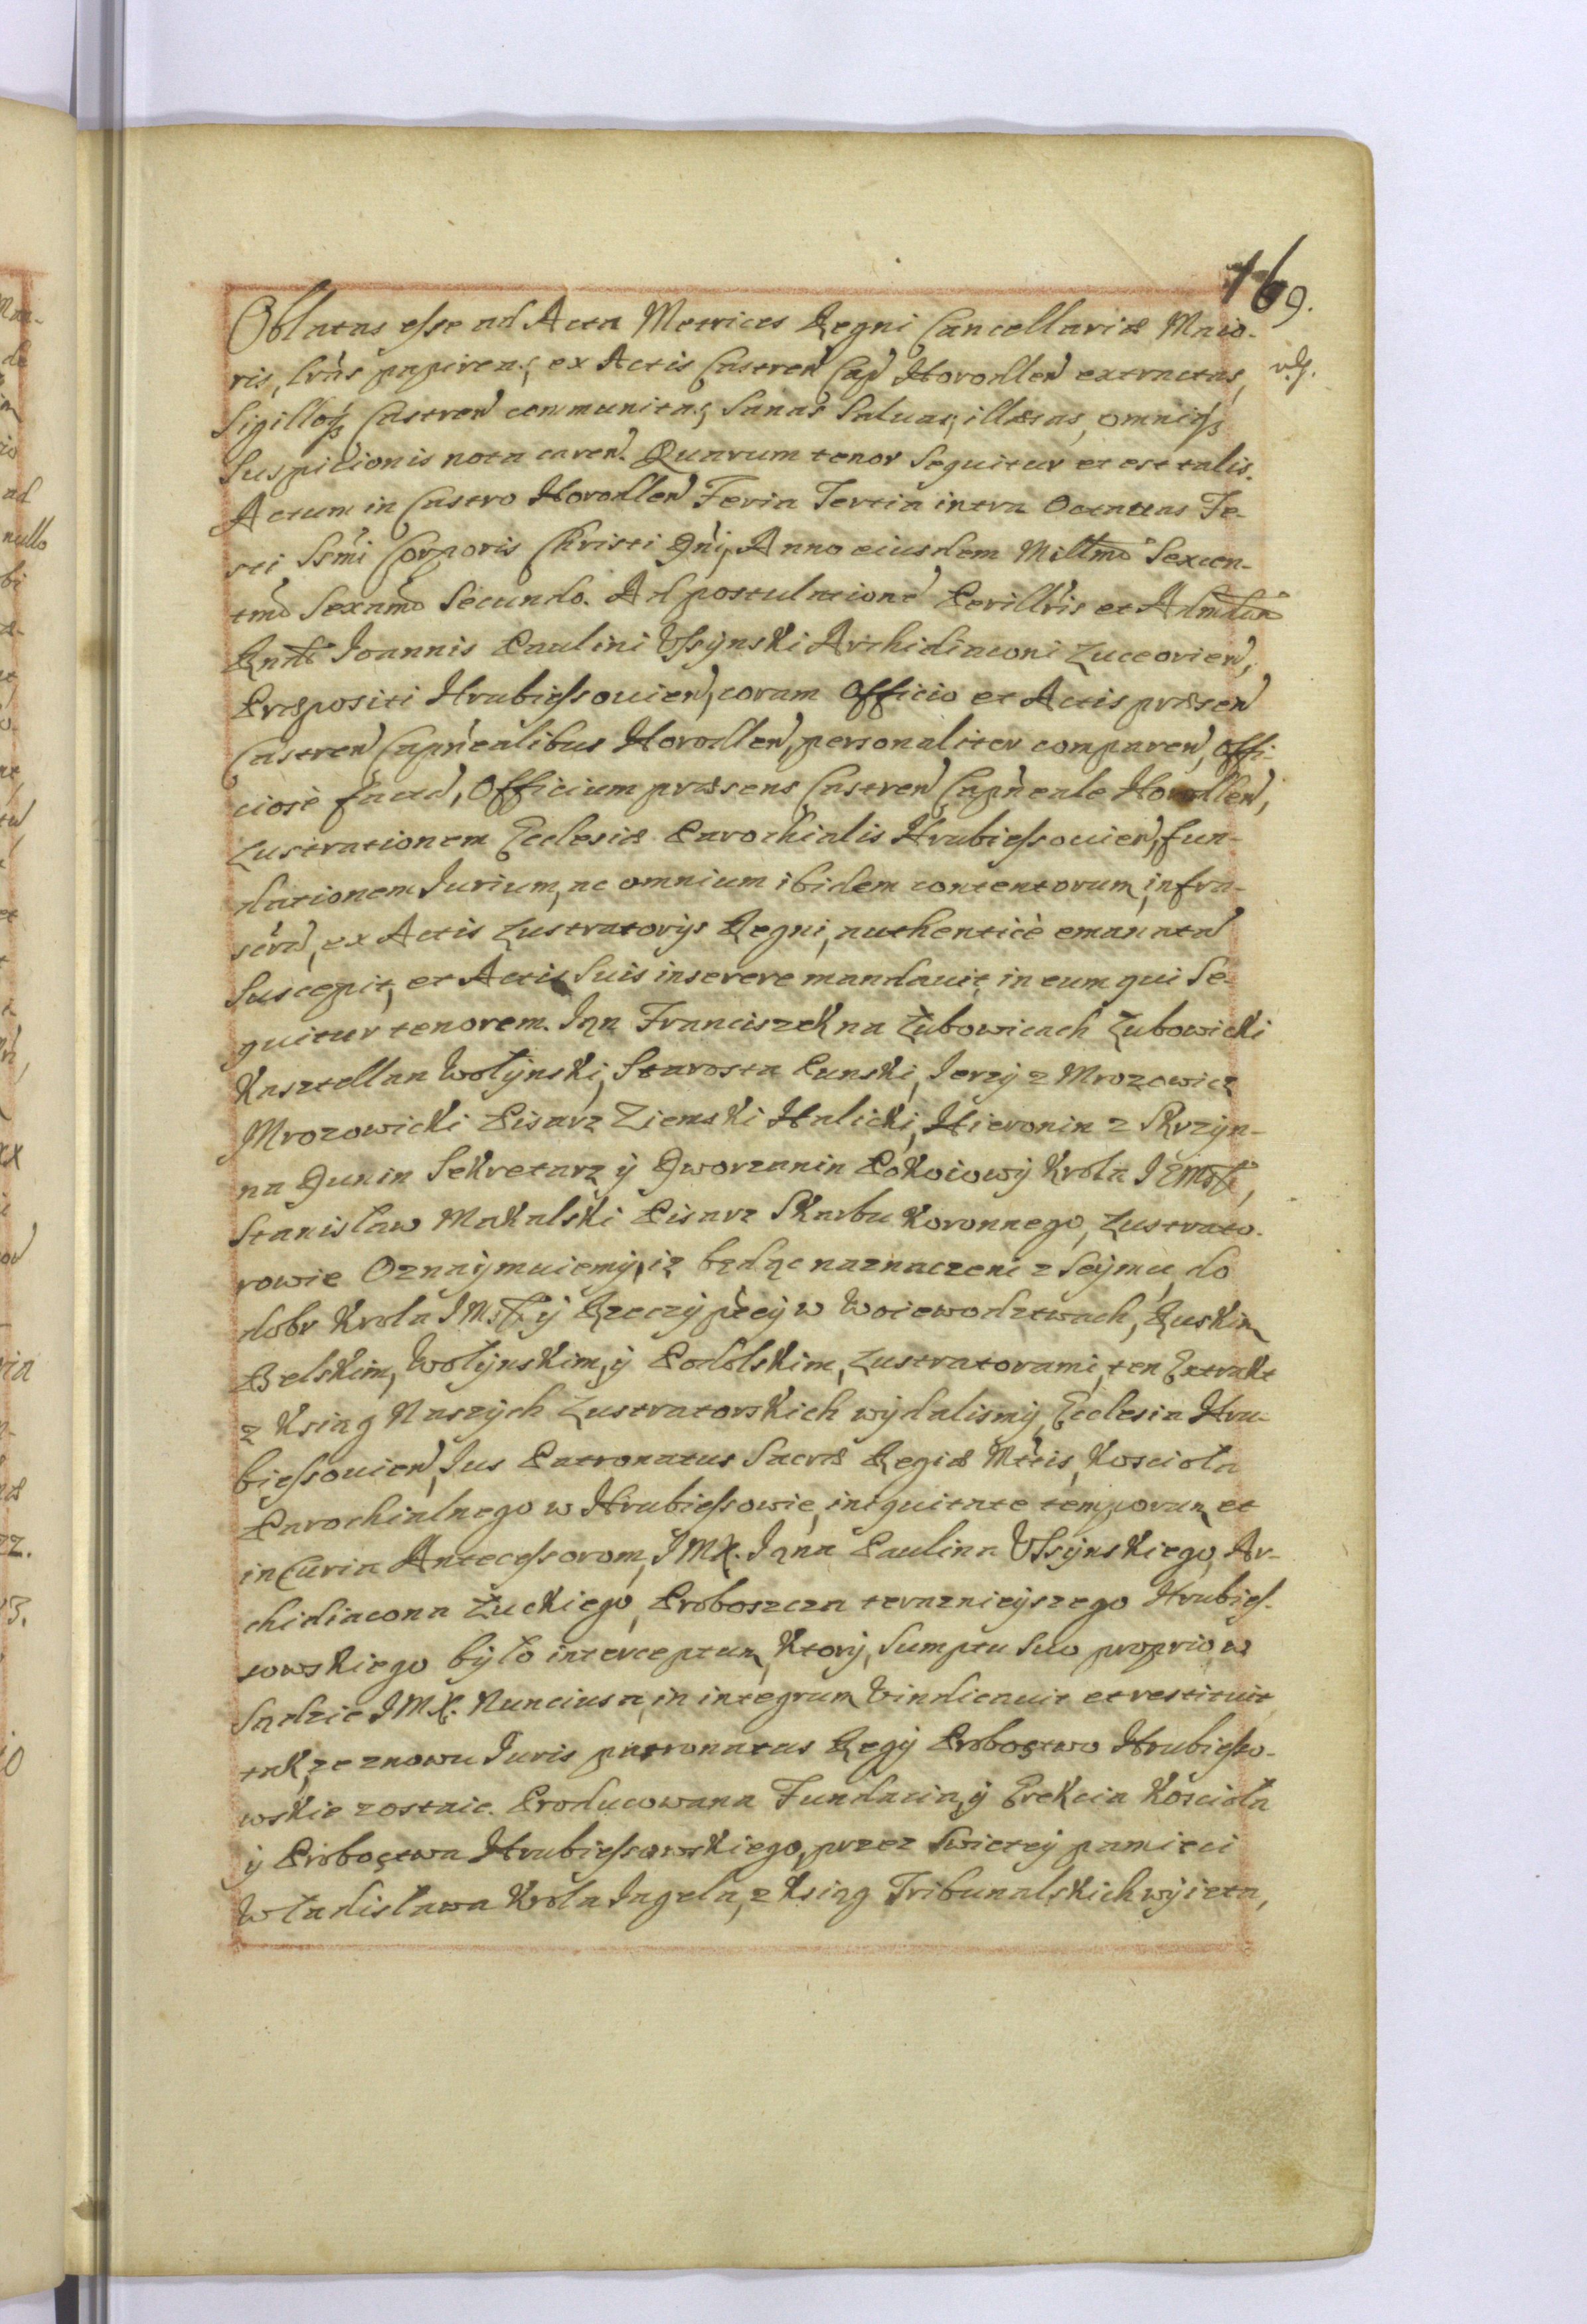 169.
v.g.
Oblatas esse ad Acta Metrices Regni Cancellariæ Maio-
ris, lrãs papireas, ex Actis Castren Cap Horodlen extractas,
Sigilloq3 Castren communitas, Sanas Saluas, illæsas, omniq3
Suspicionis nota caren. Quarum tenor Sequitur et est talis.
Actum in Castro Horodlen Feria Tertia intra Octauas Fe-
sti Ssmi Corporis Christi Dni, Anno eiusdem Millmo Sexcen-
tmo Sexagmo Secundo. Ad postulatione Perillris et Admdum
Rndi Ioannis Paulini Vssynski Archidiaconi Luceorien,
Præpositi Hrubiessouien, coram Officio et Actis præsen
Castren Capnealibus Horodlen, personaliter comparen, offi-
ciosè facta, Officium præsens Castren Capneale Horodlen,
Lustrationem Ecclesiæ Parochialis Hrubiessouien, fun-
dationem Iurium, ac omnium ibidem contentorum, infra-
scra, ex Actis Lustratorys Regni, authenticè emanata
Suscepit, et Actis Suis inserere mandauit, in eum qui Se-
quitur tenorem. Ian Franciszek na Łubowicach Łubowicki
Kasztellan Wołynski, Starosta Punski, Ierzy z Mrozowic
Mrozowicki Pisarz Ziemski Halicki, Hieronim z Skrzyn-
na Dunin Sekretarz y Dworzanin Pokoiowy Krola IEMsti,
Stanisław Makalski Pisarz Skarbu Koronnego, Lustrato-
rowie Oznaymuiemy, iz będąc naznaczeni z Seymu, do
dobr Krola IMsti y Rzeczyptey w Woiewodztwach, Ruskim
Belskim, Wołynskim, y Podolskim, Lustratorami, ten Extrakt
z Ksiąg Naszych Lustratorskich wydalismy, Ecclesia Hru-
biessouien, Ius Patronatus Sacræ Regiæ Mtis, Koscioła
Parochialnego w Hrubiessowie, iniquitate temporum et
in Curia Antecessorom, IMX. Iana Paulina Vssynskiego, Ar-
chidiacona Łuckiego, Proboszcza teraznieyszego Hrubies-
sowskiego było interceptum, Ktory, Sumptu Suo proprio w
Sądzie IMX. Nunciusa, in integrum Vindicauit et restituit
tak, ze znowu Iuris patronatus Regy Proboстwo Hrubiesso-
wskie zostaie. Producowana Fundacia, y Erekcia Kościoła
y Probostwa Hrubiessowskiego, przez Swietey pamieci
Władisława Krola Iagela, z Ksiąg Tribunalskich wyieta,